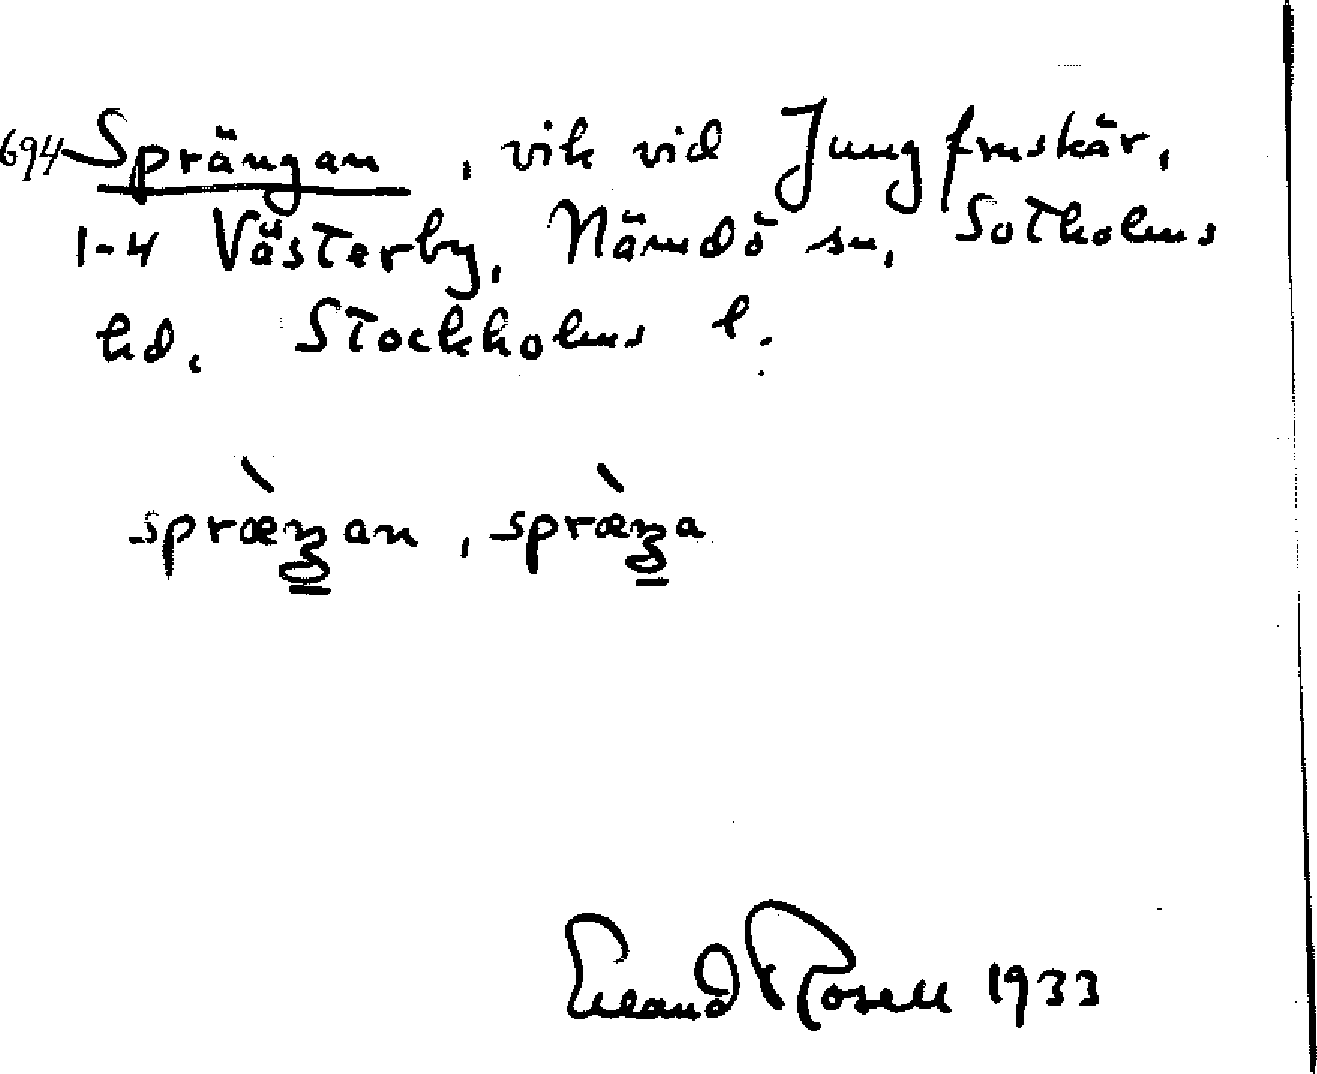 694 Sprängan, vik vid Jungfruskär,
1-4 Västerby, Nämdö sn, Sotholms
hd. Stockholms l.
spræ̀ŋan, spræ̀ŋa
Erland Rosell 1933